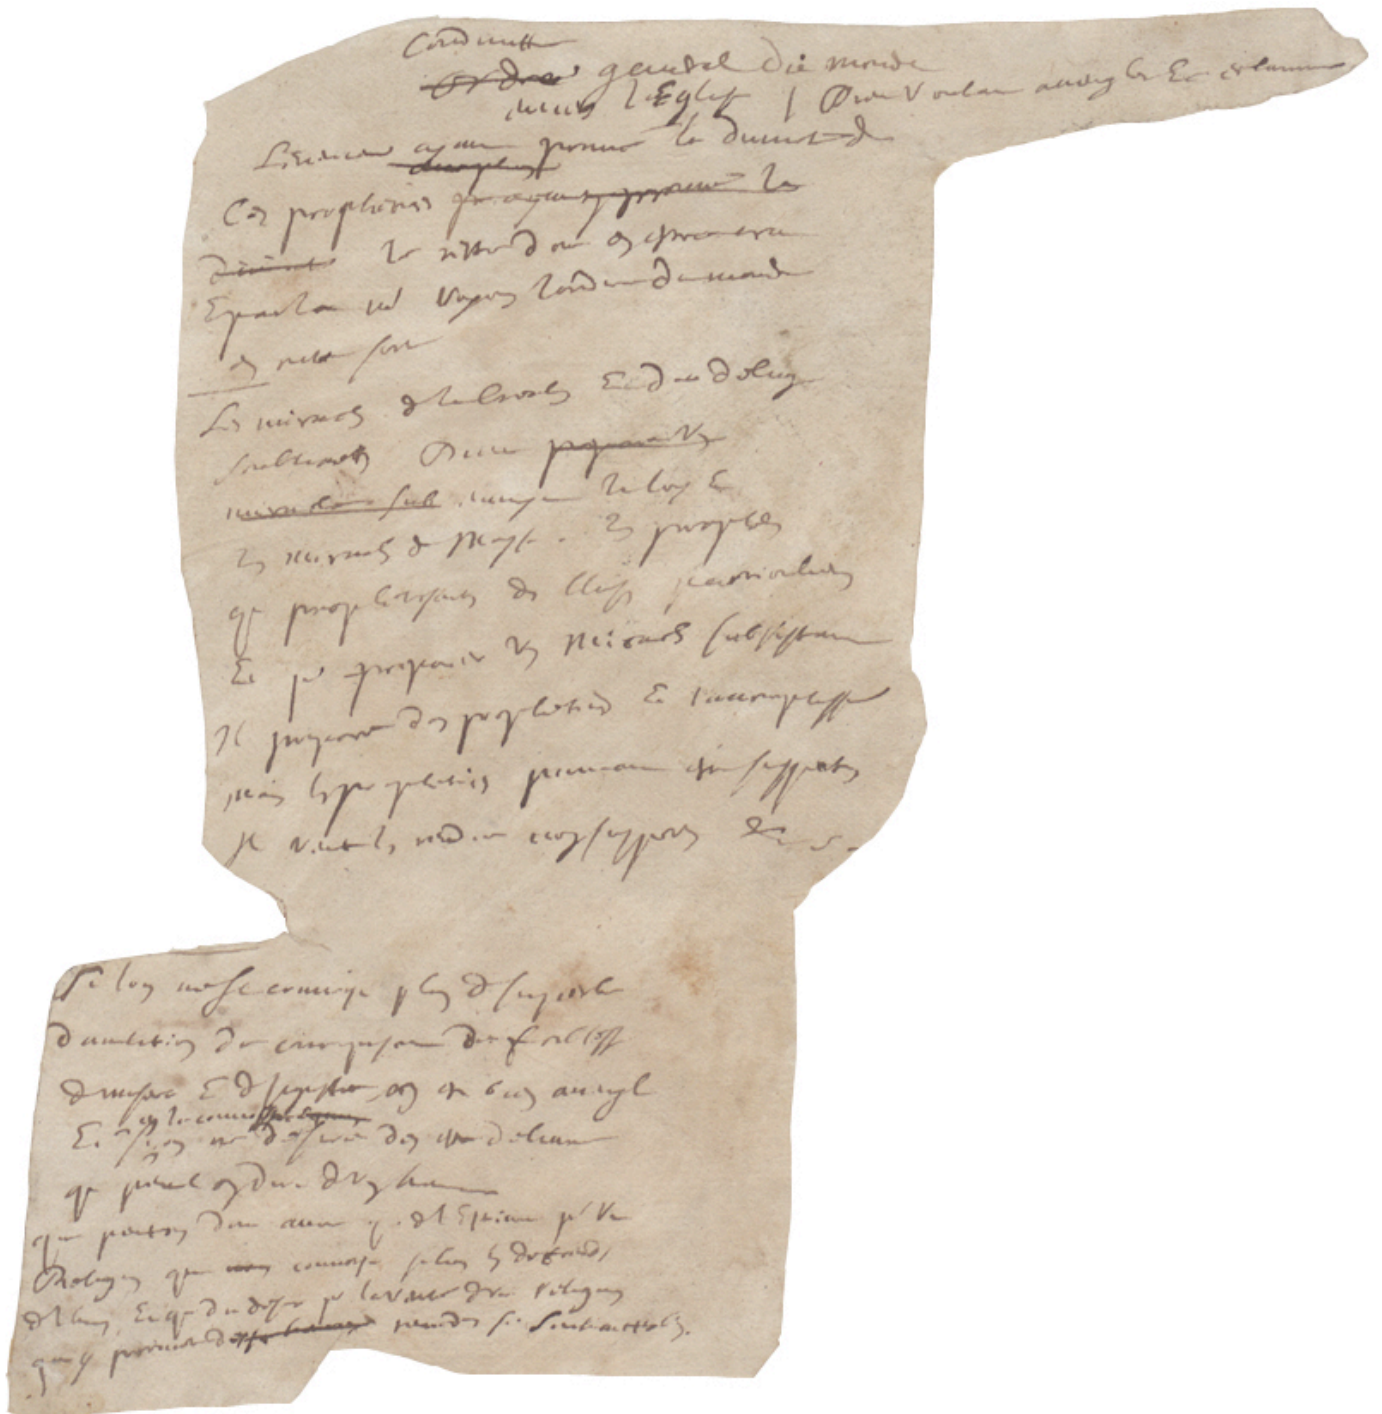 Conduitte
Ordre general du monde
envers l'Eglise / Dieu voulant aveugler Et esclairer
L'evenement ayant prouvé la divinité de
Ces propheties qui ayant prouvé la
divinité le reste doit en estre creu
Et par la nous voyons l'ordre du monde
en cette sorte
Les miracles de la creation Et du deluge
s'oubliants Dieu
miracle sub envoya la loy Et
les miracles de Moyse. les prophetes
qui prophetisent des choses particulieres
Et pour preparer un Miracle subsistant
Il prepare des propheties Et l'accomplissement
Mais les propheties pouvant estre suspectes
Il veut les rendre non suspectes &c.
Si l'on ne se connoist plein de superbe
d'ambition de concupiscence de foiblesse
de misere Et d'injustice on est bien aveugle
en le connoissant
Et si on ne desire d'en estre delivré
que peut on dire d'un homme
que peut on donc avoir que de l'Estime pour Une
Religion qui connoist si bien les defauts
de l'homme, Et que du desir pour la verité d'une religion
qui y promet des remedes si souhaittables.